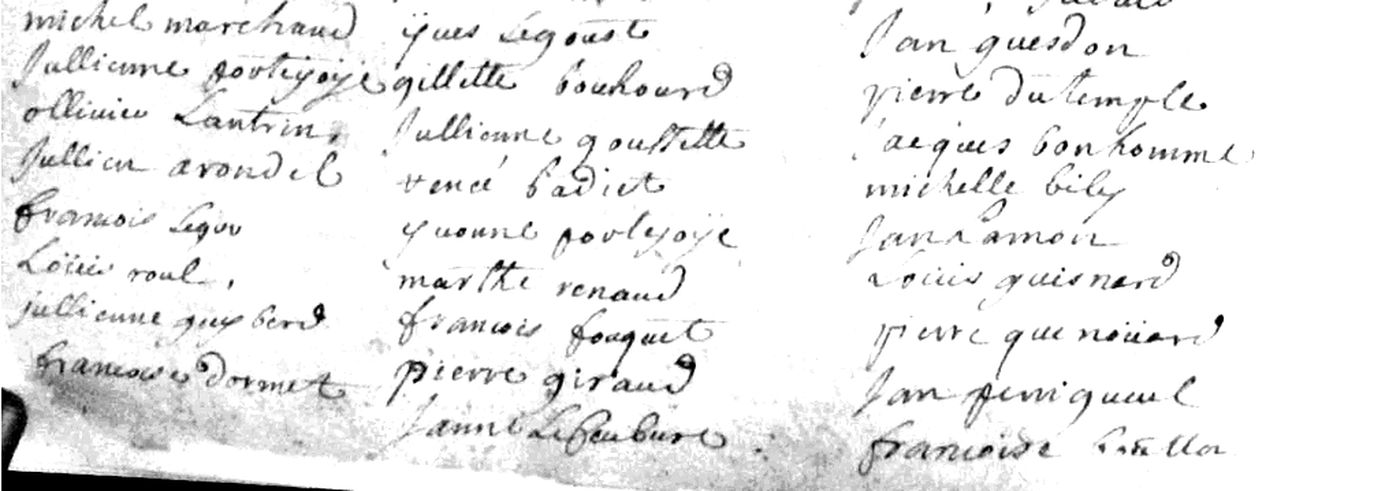 michel marchand
Jullienne portejoije
ollivier Lantrin,
Jullien arondel
francois Legou
Loüis roul,
jullienne guyberd
francoise dormet
yues Legoust
gillette bouhourd
Jullienne goultette
rené badiet
yuonne portejoije
marthe renaud
francois fouquet
pierre giraud
Janne Lefeubure
Jan guesdon
pierre du temple
Jacques bonhomme
michelle bily
Jan Lamon
Loüis guisnard
pierre quenoüard
Jan perrigueul
francoise